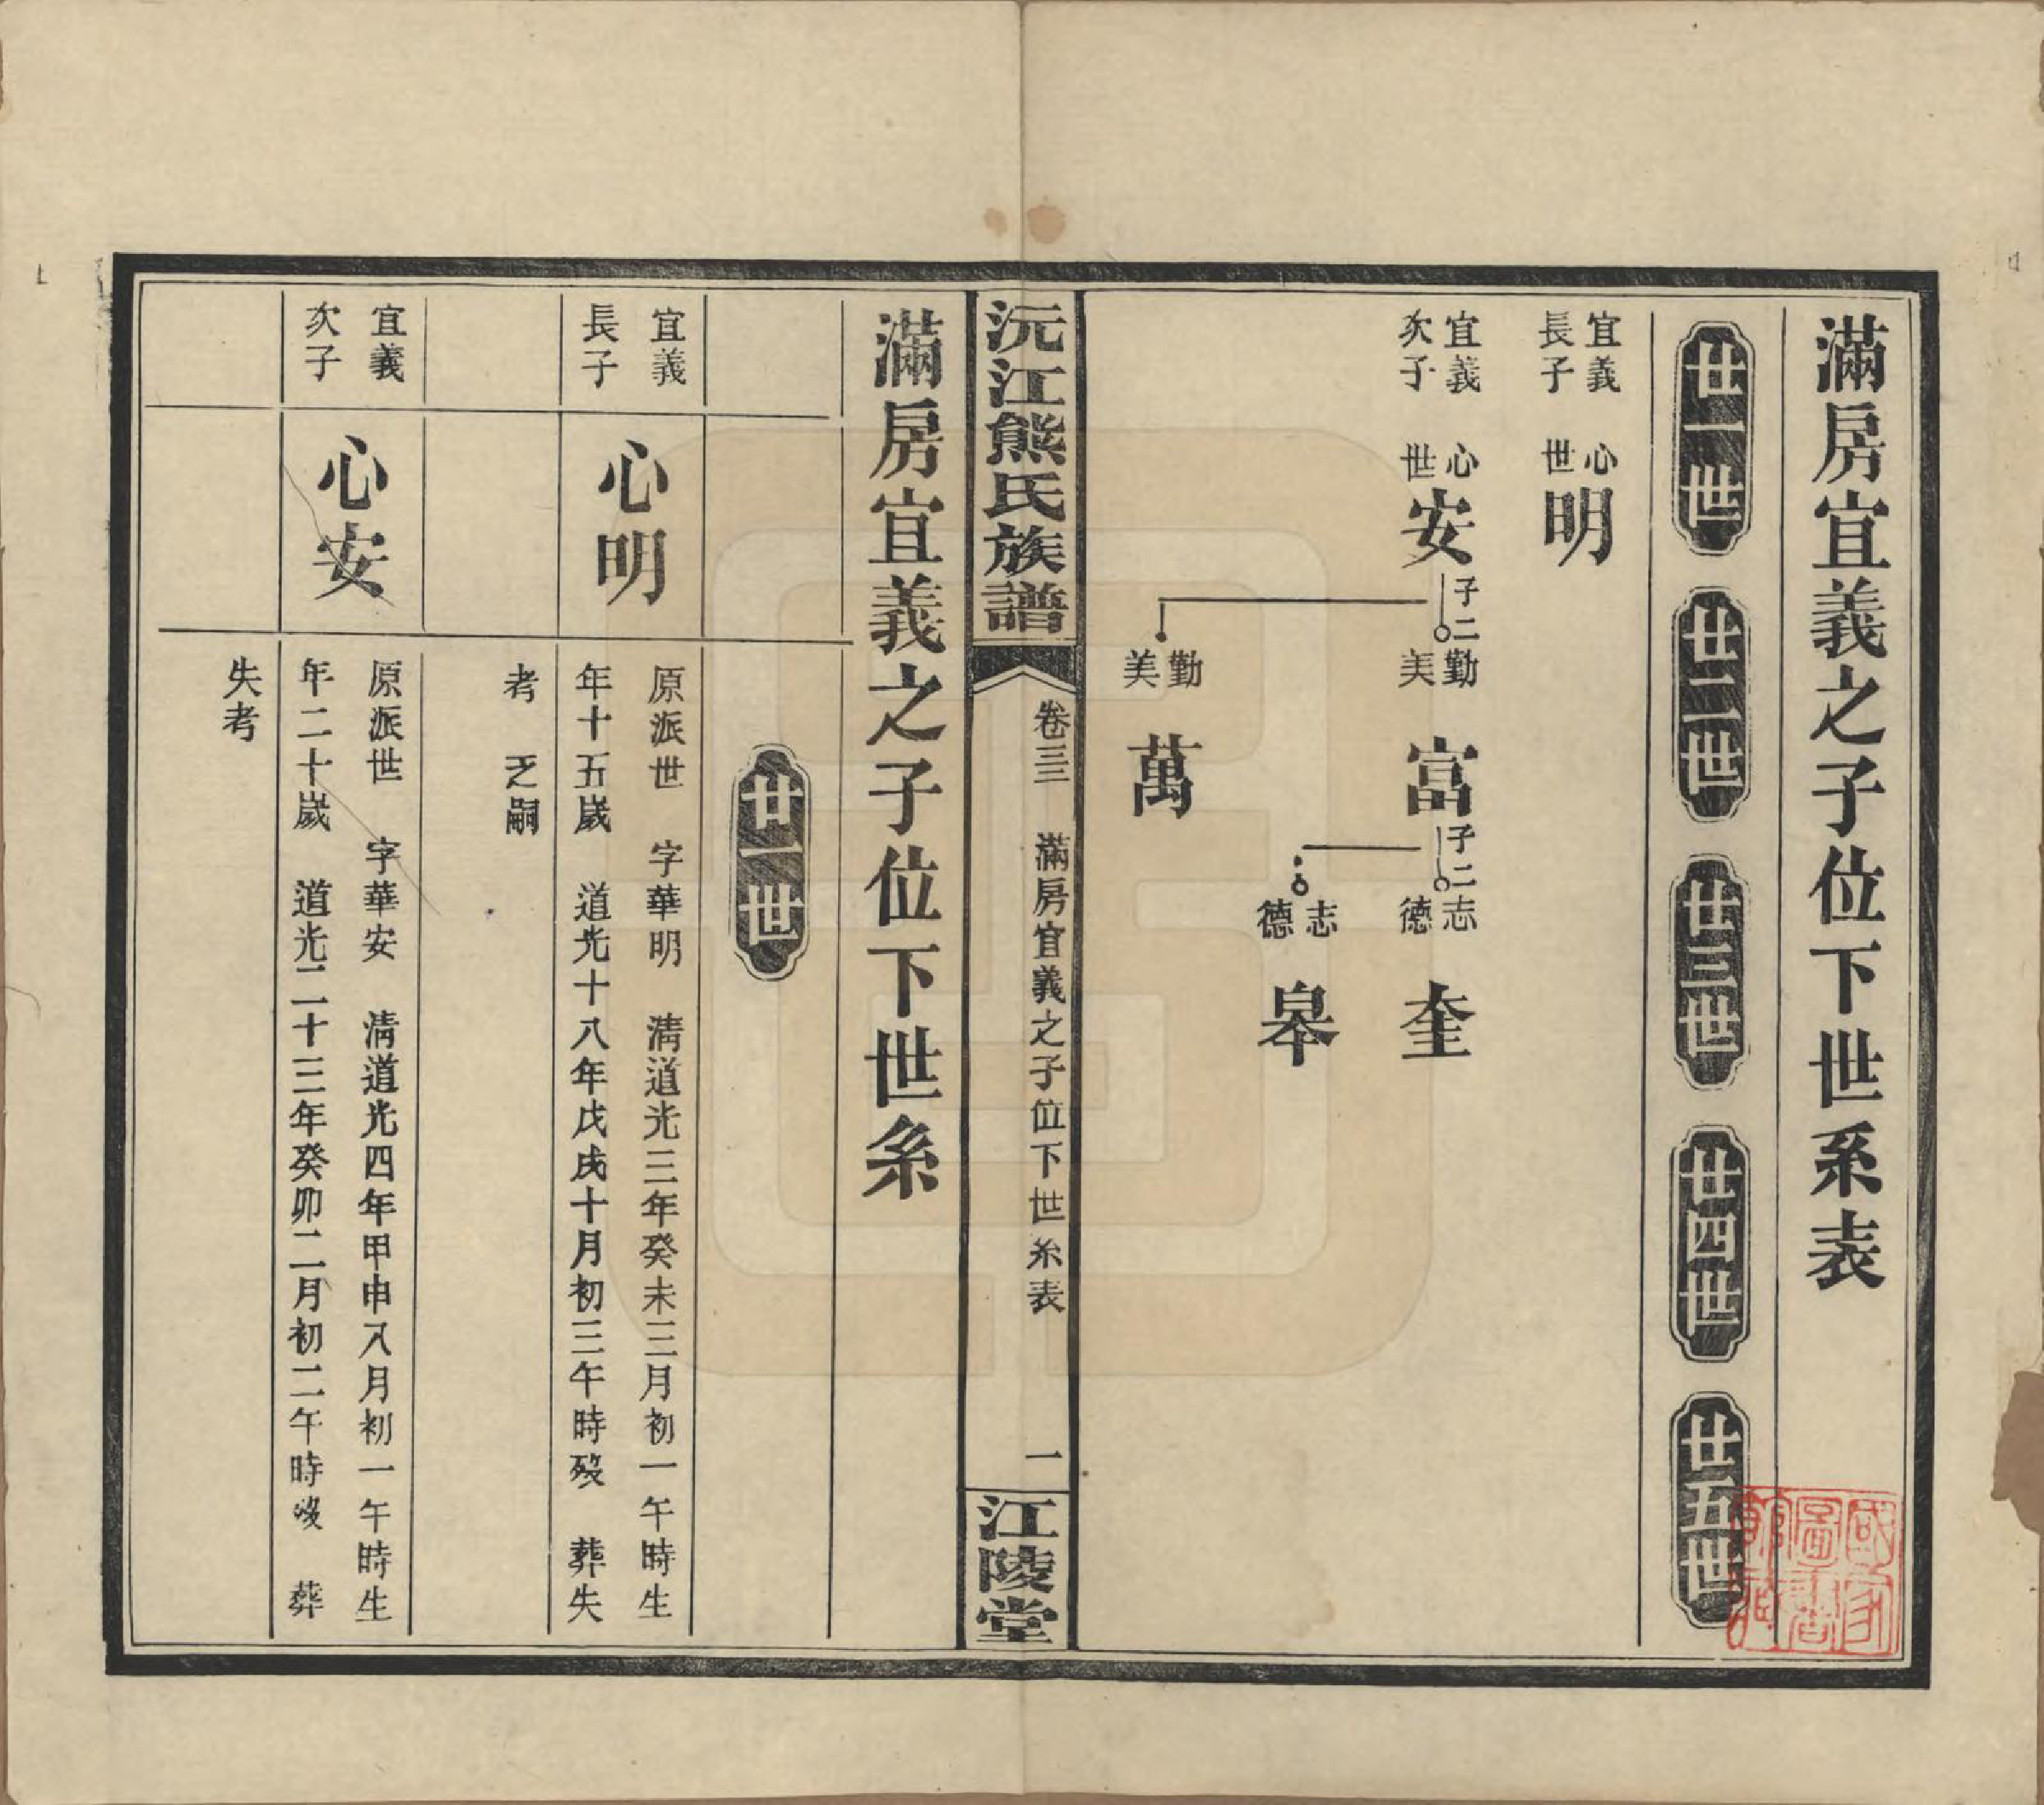 滿房宜義之子位下世系表
廿一世
廿二世
廿三世
廿四世
廿五世
宜義
長子
心世
明
宜義
次子
心世
安
子二
勤美
富
子二
志德
奎
志德
皋
勤美
萬
沅江熊氏族譜
卷三
滿房宜義之子位下世系表
一
江陵堂
滿房宜義之子位下世系
廿一世
宜義
長子
心明
原派世 字華明 清道光三年癸未三月初一午時生
年十五歲 道光十八年戊戌十月初三午時歿 葬失
考 乏嗣
宜義
次子
心安
原派世 字華安 清道光四年甲申八月初一午時生
年二十歲 道光二十三年癸卯二月初二午時歿 葬
失考
國家
圖書
館藏